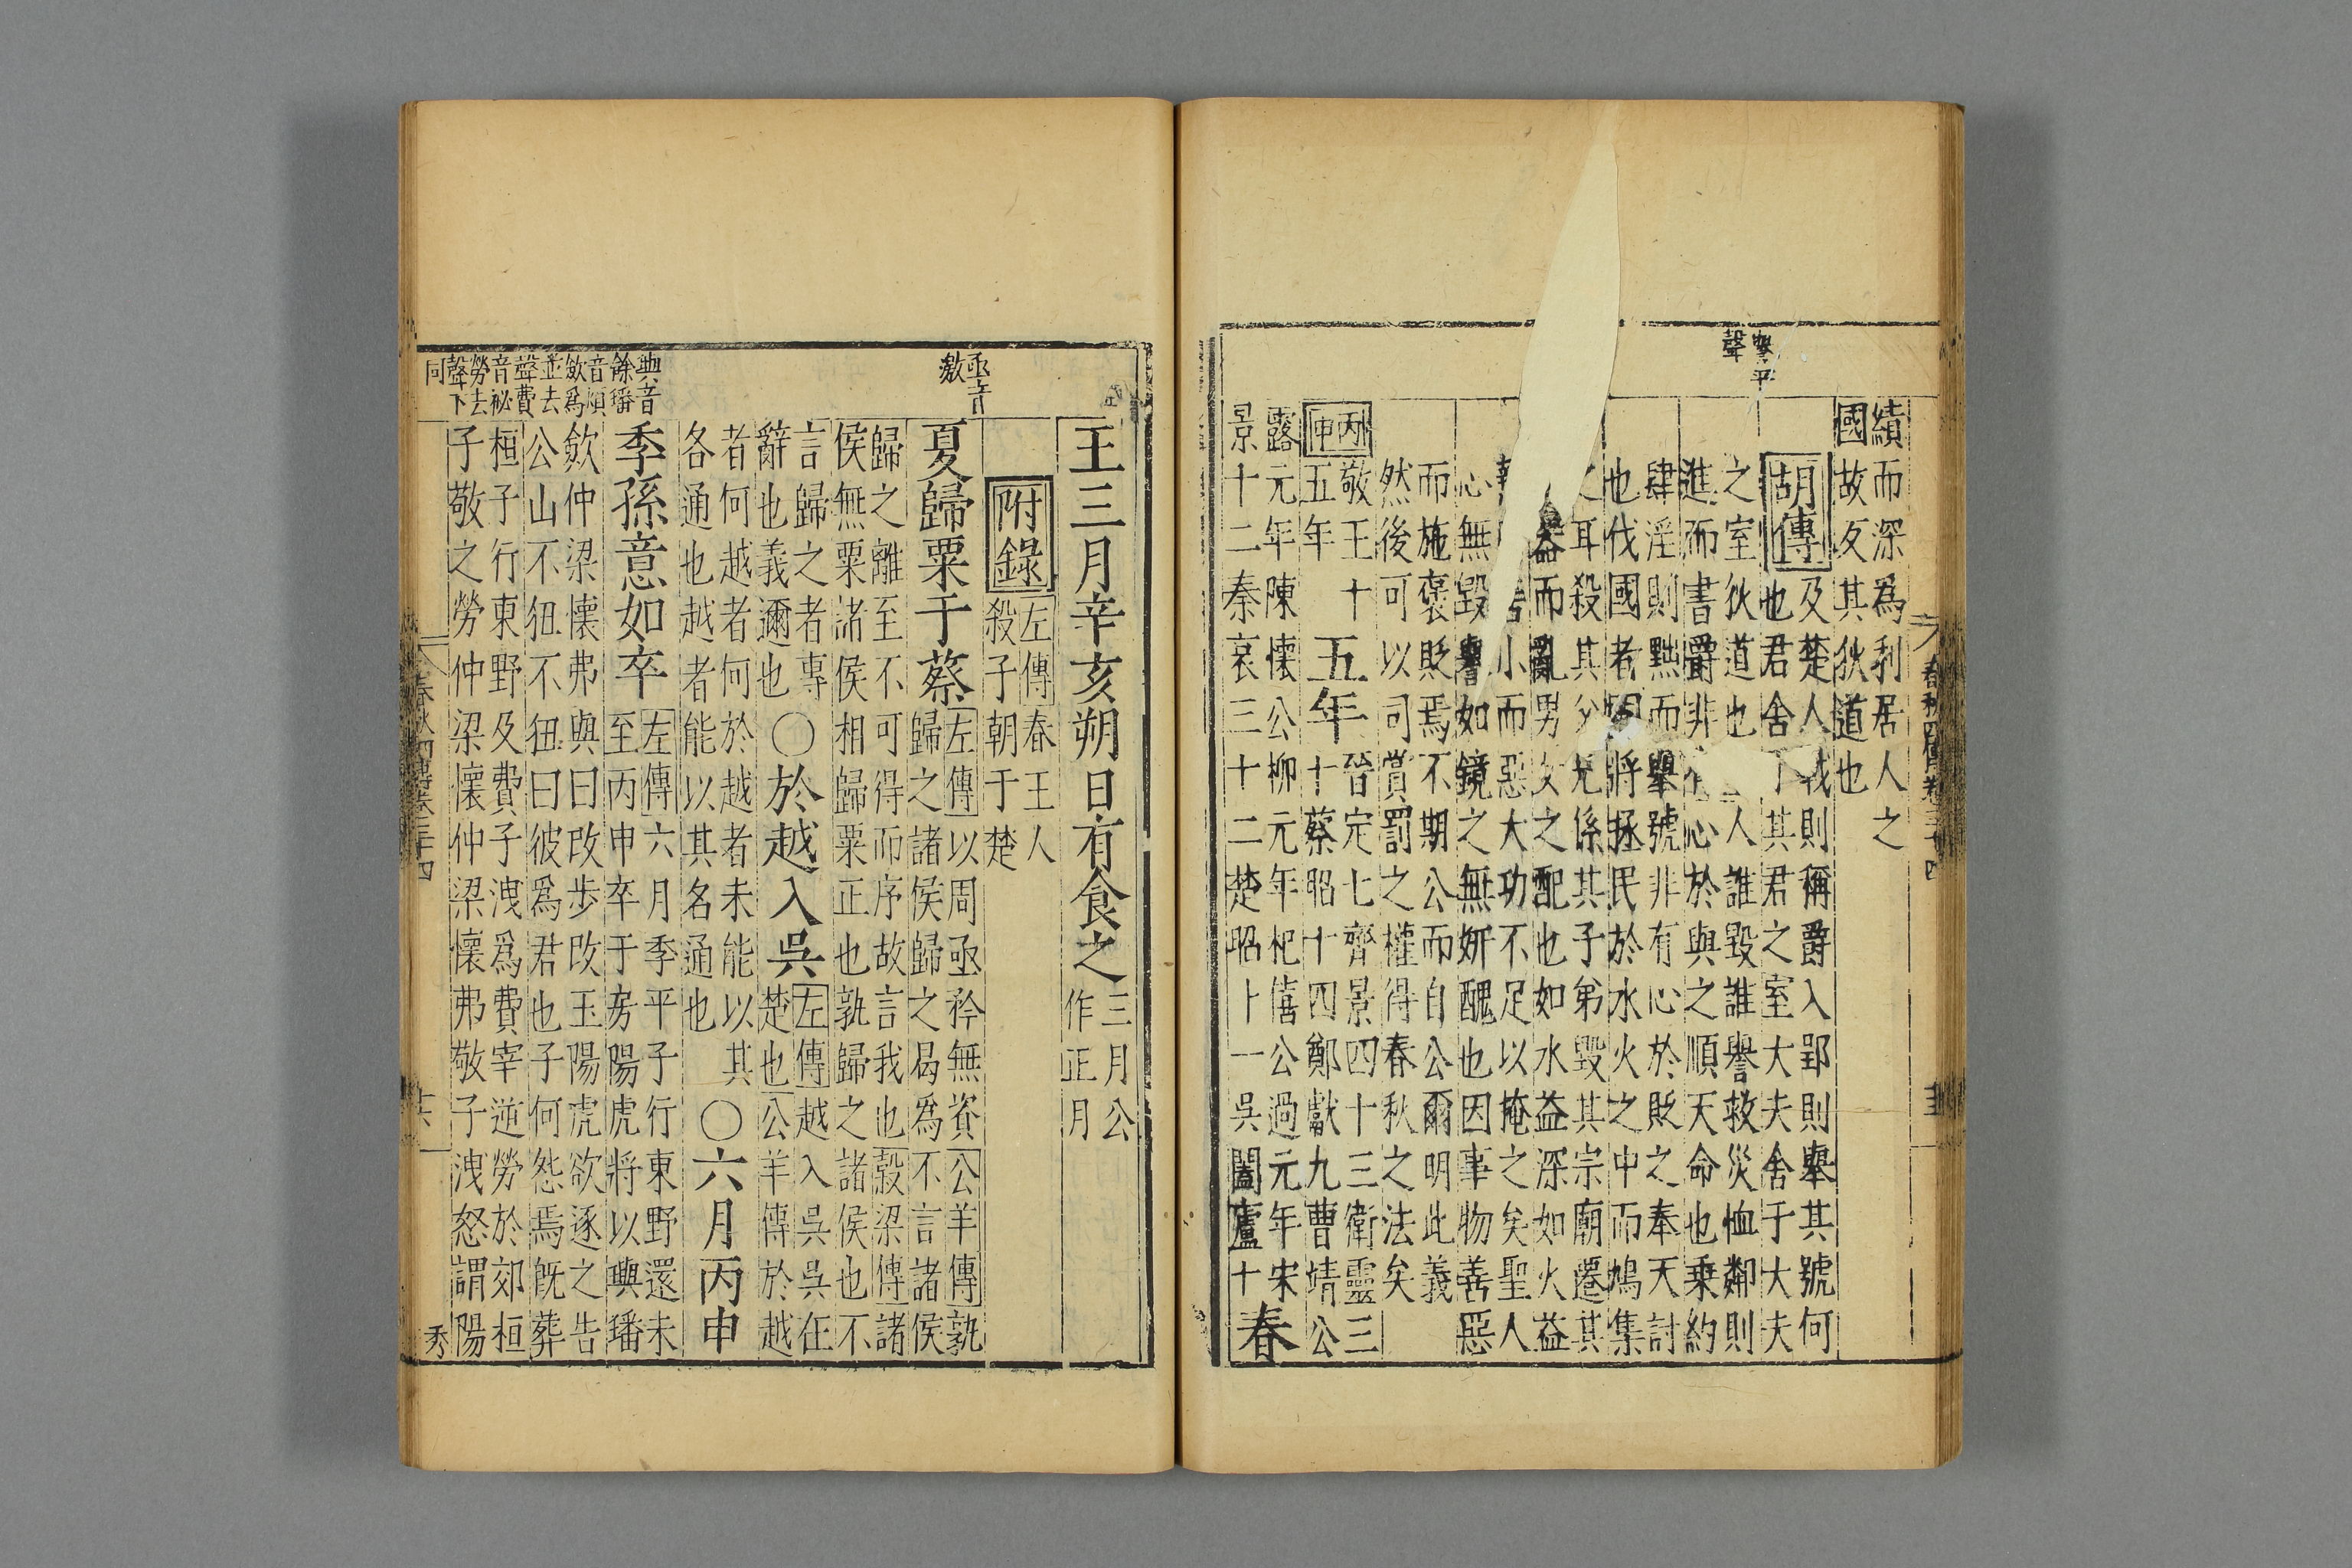 聲平
聲
績而深爲利居人之
國故反其狄道也
胡傳及楚人戰則稱爵入郢則舉其號何
也君舍于其君之室大夫舍于大夫
之室狄道也人誰毀誰譽救災恤鄰則
進而書爵非有心於與之順天命也乗約
肆淫則黜而舉號非有心於貶之奉天討
也伐國者固將拯民於水火之中而鳩集
之耳殺其父兄係其子弟毀其宗廟遷其
器而亂男女之配也如水益深如火益
小而惡大功不足以掩之矣聖人
心無毀譽如鏡之無妍醜也因事物善惡
而施褒貶焉不期公而自公爾明此義
然後可以司賞罰之權得春秋之法矣
丙申
敬王十
五年
五年
晉定七齊景四十三衛靈三
十蔡昭十四鄭獻九曹靖公
露元年陳懷公柳元年杞僖公過元年宋
景十二秦哀三十二楚昭十一吳闔廬十
春
春秋四傳卷三十四
王三月辛亥朔日有食之
三月公
作正月
亟音
激
附錄
左傳春王人
殺子朝于楚
夏歸粟于蔡
左傳以周亟矜無資公羊傳孰
歸之諸侯歸之曷爲不言諸侯
歸之離至不可得而序故言我也穀梁傳諸
侯無粟諸侯相歸粟正也孰歸之諸侯也不
言歸之者專
辭也義邇也
〇於越入吳
左傳越入吳吳在
楚也公羊傳於越
者何越者何於越者未能以其
各通也越者能以其名通也
〇六月丙申
季孫意如卒
左傳六月季平子行東野還未
至丙申卒于房陽虎將以璵璠
歛仲梁懷弗與曰改步改玉陽虎欲逐之告
公山不狃不狃曰彼爲君也子何怨焉旣葬
桓子行東野及費子洩爲費宰逆勞於郊桓
子敬之勞仲梁懷仲梁懷弗敬子洩怒謂陽
璵音
餘璠
音煩
歛爲
並去
聲費
音祕
勞去
聲下
同
春秋四傳卷三十四
秀